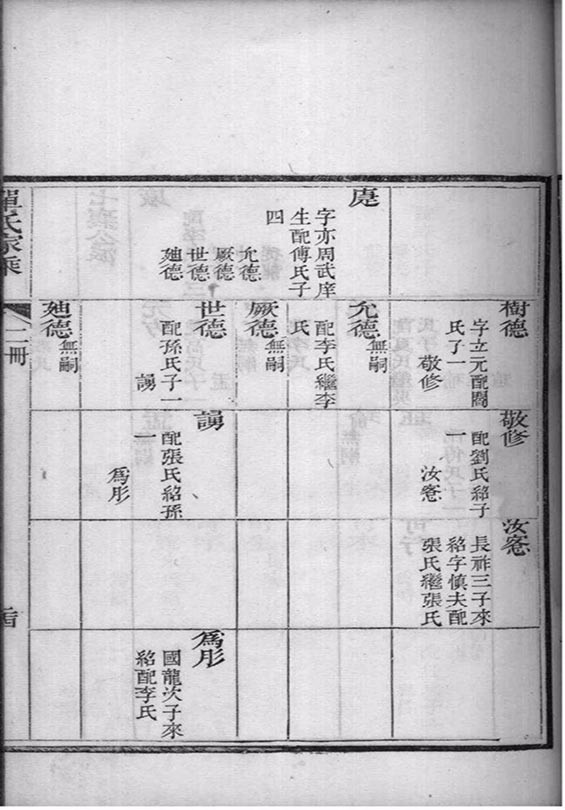 字亦周武庠
生配傅氏子
四
允德
厥德
世德
廸德
樹德
字立元配閻
氏子一
敬修
允德 無嗣
配李氏繼李
氏
厥德 無嗣
世德
配孫氏子一
廸德 無嗣
敬修
配劉氏紹子
一
汝愙
配張氏紹孫
一
為彤
汝愙
長祚三子來
紹字慎夫配
張氏繼張氏
為彤
國龍次子來
紹配李氏
單氏家乘
二冊